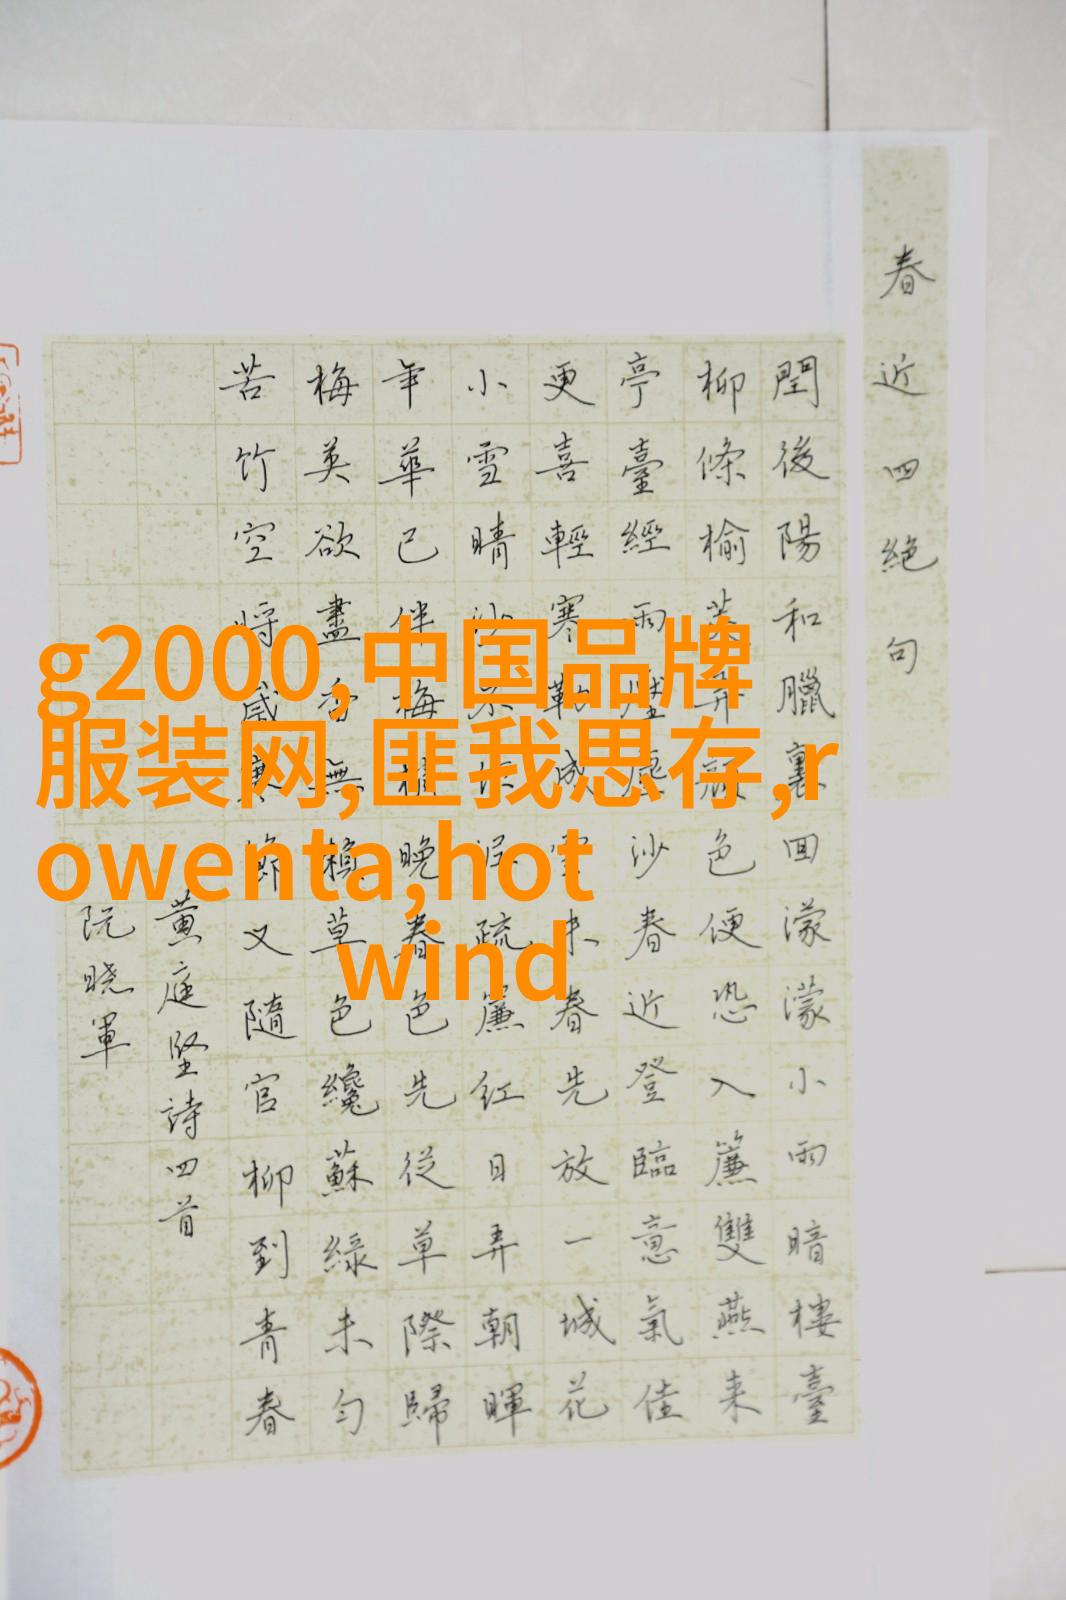 春近四絶句
閏後陽和臘裏回濛濛小雨暗樓臺
柳條榆莢弄顔色便恐入簾雙燕来
亭臺經雨壓塵沙春近登臨意氣佳
更喜輕寒勒成雪未春先放一城花
小雪晴沙不作泥疏簾紅日弄朝暉
年華已伴梅梢晚春色先從草際歸
梅英欲盡香無賴草色纔蘇綠未勻
苦竹空將歲寒節又隨官柳到青春
黄庭堅詩四首
阮晓軍
g2000,中国品牌
服装网,匪我思存,r
owenta,hot
wind